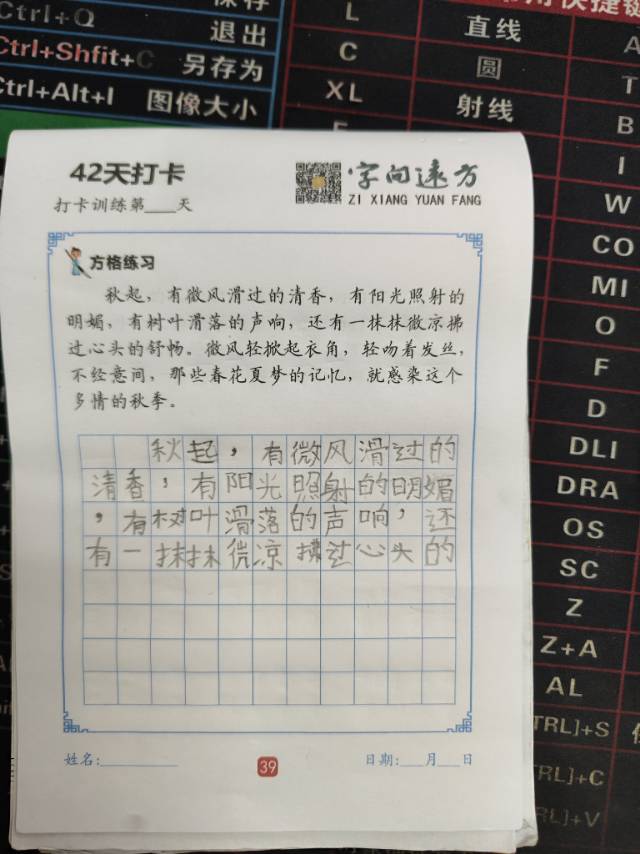 Ctrl+Q 退出
Ctrl+Shfit+C 另存为
Ctrl+Alt+I 图像大小
L 直线
C 圆
XL 射线
42天打卡
打卡训练第___天
字向远方
ZI XIANG YUAN FANG
方格练习
秋起，有微风滑过的清香，有阳光照射的
明媚，有树叶滑落的声响，还有一抹抹微凉拂
过心头的舒畅。微风轻掀起衣角，轻吻着发丝，
不经意间，那些春花夏梦的记忆，就感染这个
多情的秋季。
秋起，有微风滑过的
清香，有阳光照射的明媚
，有树叶滑落的声响，还
有一抹抹微凉拂过心头的
姓名:
39
日期:___月___日
A
T
B
I
W
CO
MI
O
F
D
DLI
DRA
OS
SC
Z
Z+A
AL
TRL]+S
RL]+C
RL)+V